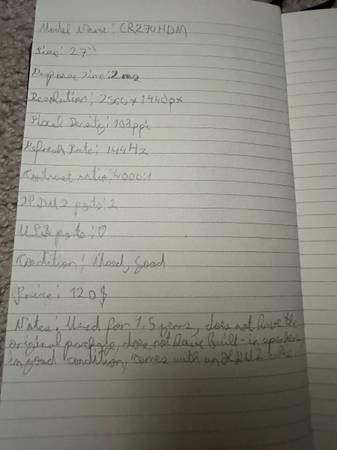 Model Name: CR270HDM
Size: 27"
Response Time: 2ms
Resolution: 2560x1440px
Pixel Density: 108ppi
Refresh Rate: 144Hz
Contrast ratio: 4000:1
HDMI2 ports: 2
USB ports: 0
Condition: Used, good
Price: 120$
Notes: Used for 1.5 years, does not have the
original package, does not have built-in speakers
in good condition, comes with an HDMI2